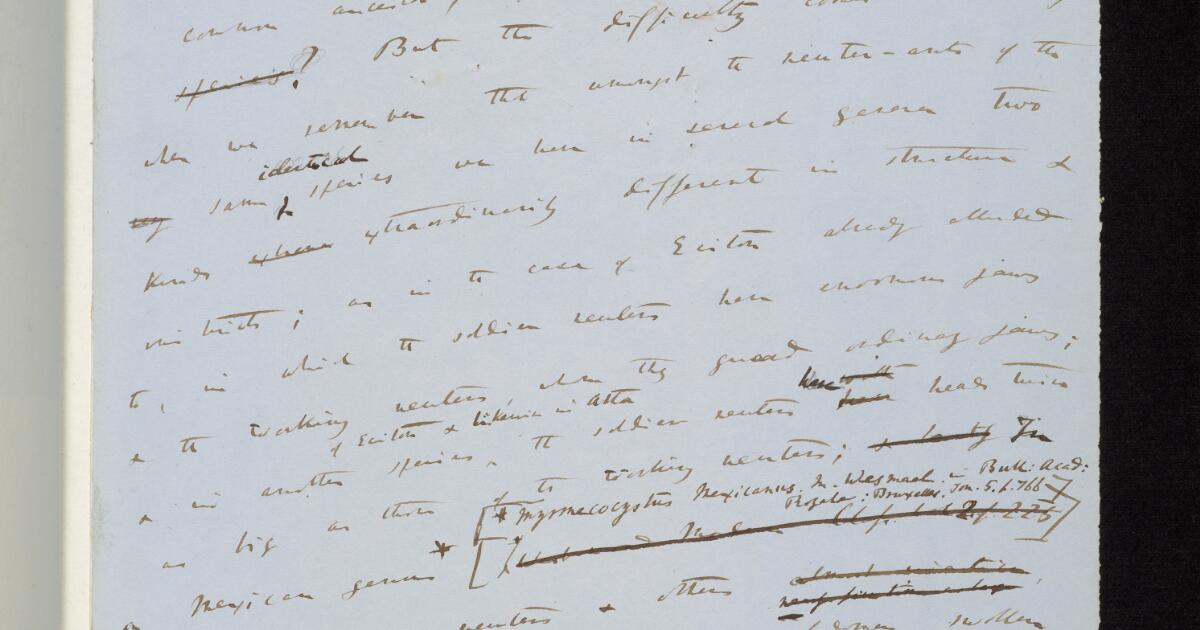 common ancestor
species? But the difficulty comes
when we remember that amongst the neuter-ants of the
identical
same & species we have in several genera two
kinds extraordinarily different in structure &
instincts; as in the case of Eciton already alluded
to, in which the soldier neuters have enormous jaws
& the working neuters, whom they guard ordinary jaws;
of Eciton & likewise in Atta have with
& in another species, the soldier neuters have heads twice
as big as those of the working neuters; & lastly In
[* Myrmecocystus Mexicanus. M. Wesmael. in Bull: Acad:
Royale: Bruxelles, Tom. 5. p. 766]
Mexican genus * p. 225
neuters & others
women swollen